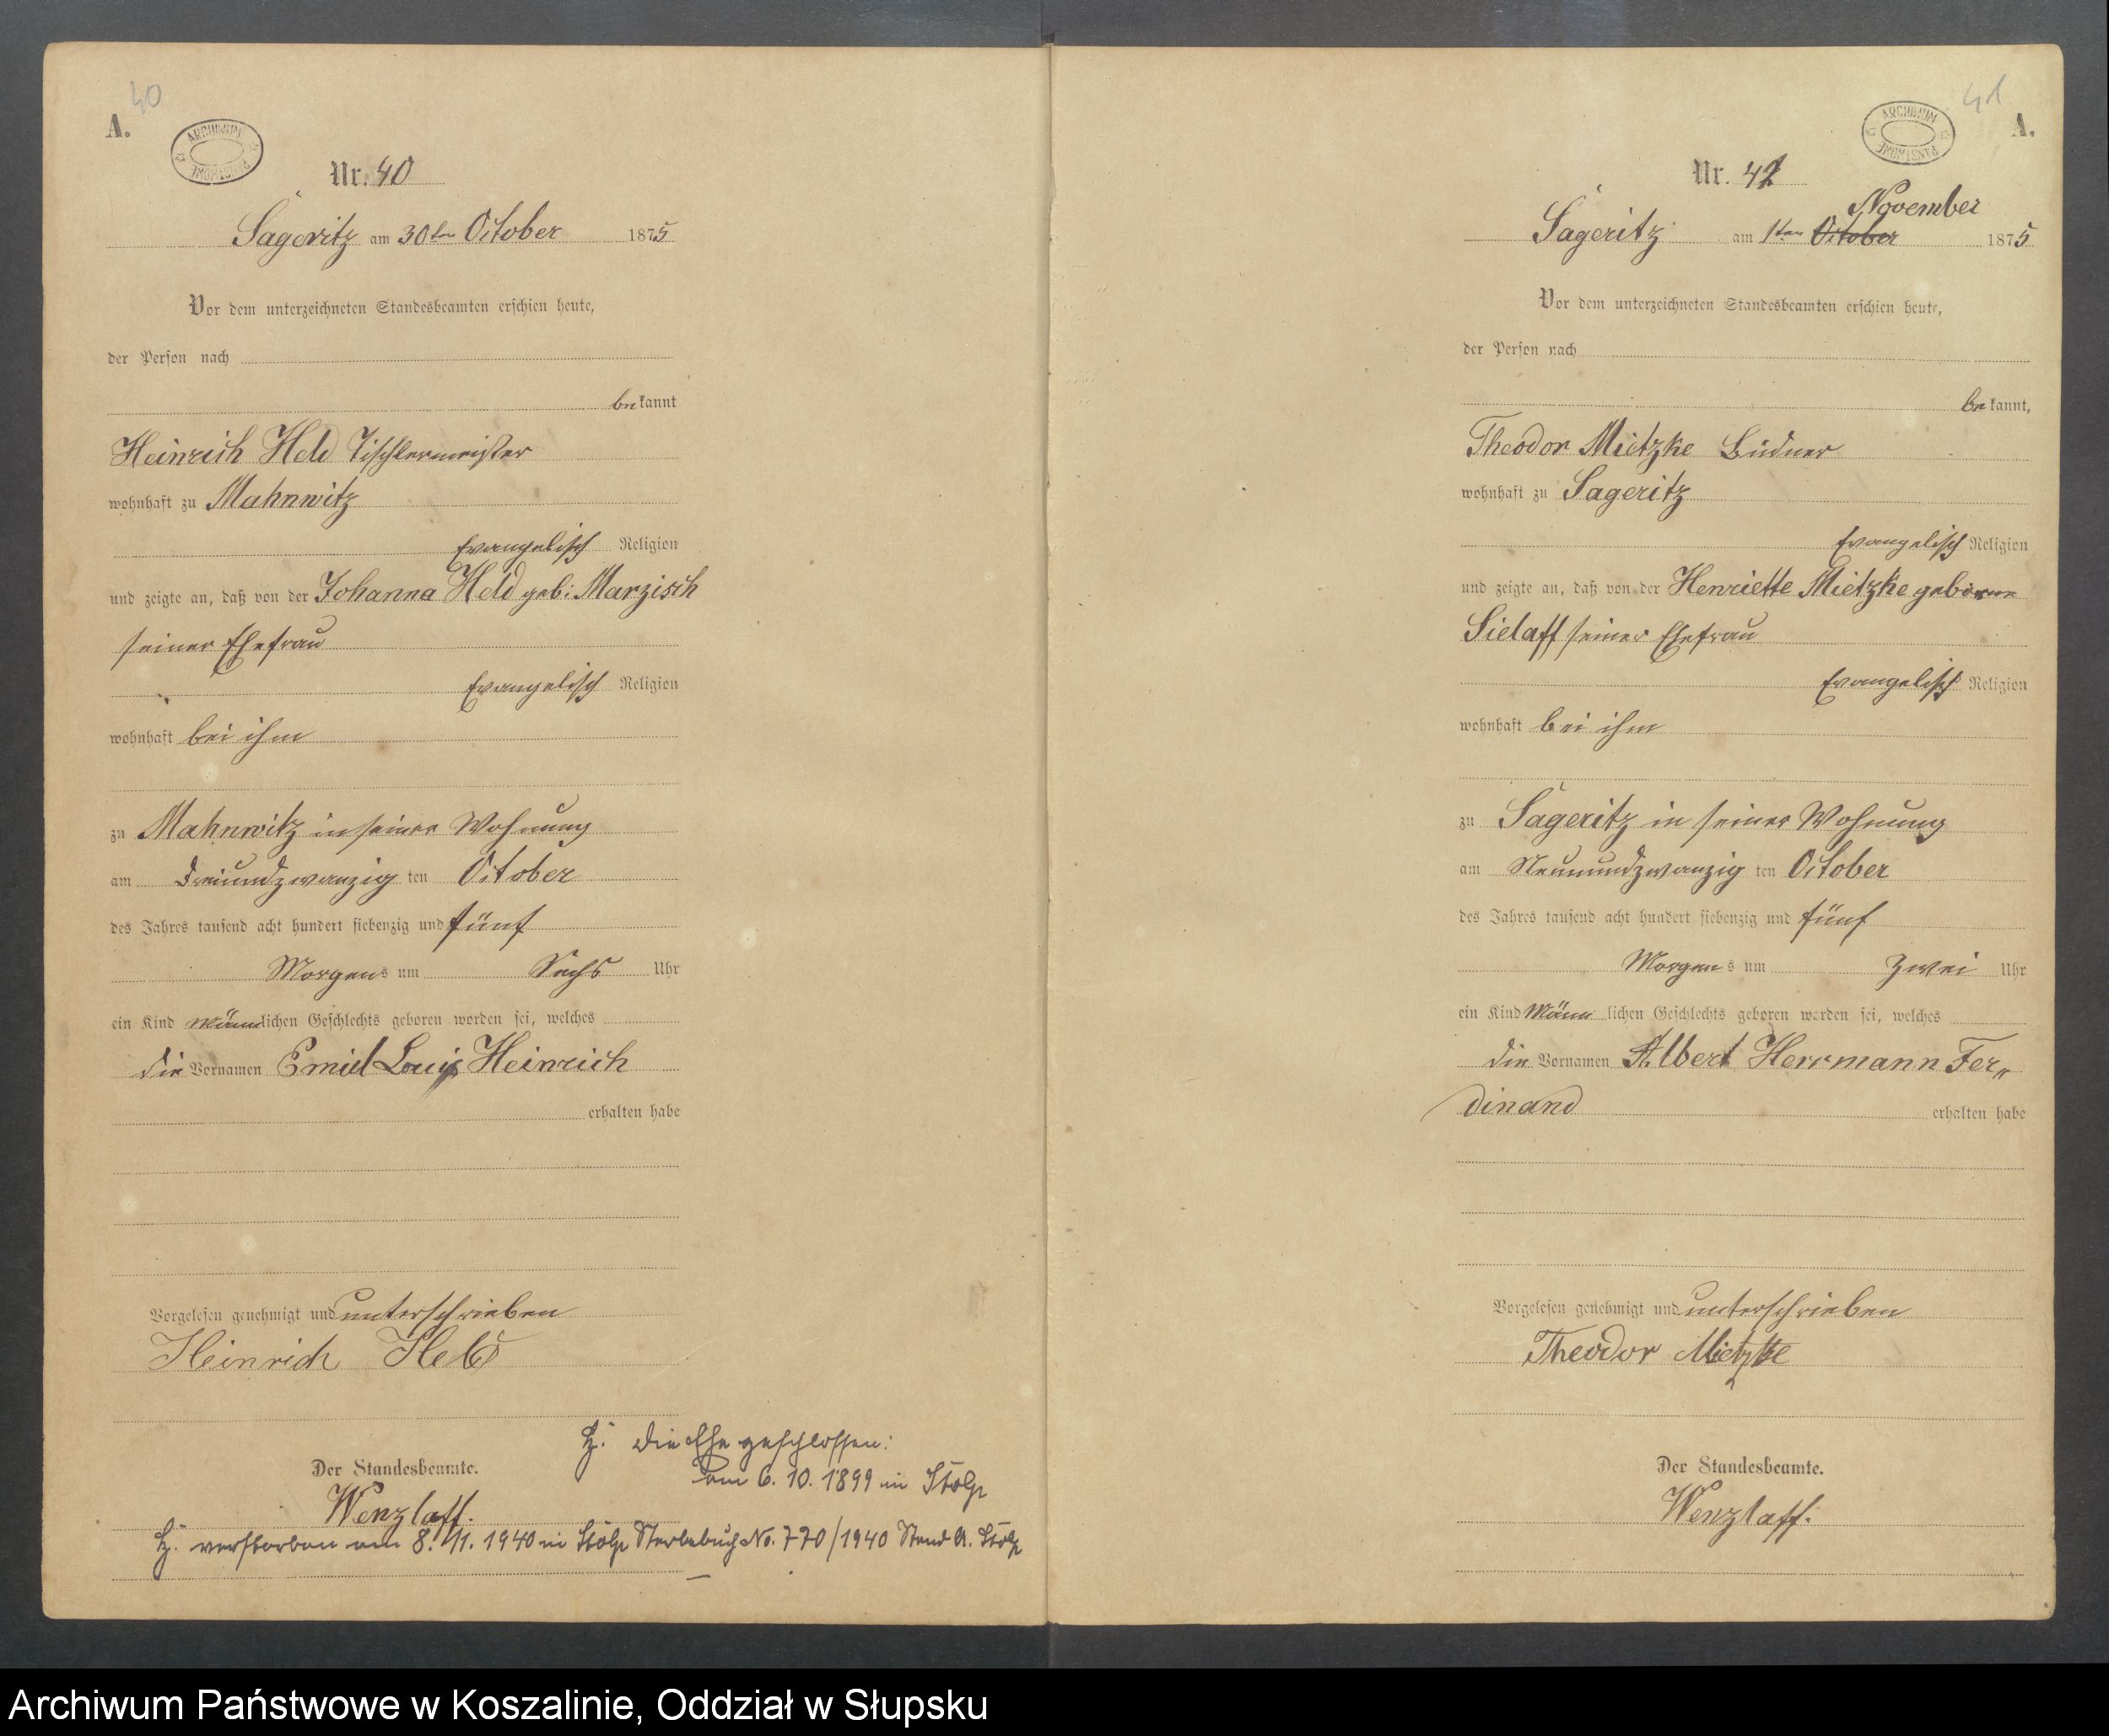 40
A.
ARCHIWUM PAŃSTWOWE
Nr. 40
Sageritz am 30ten October 1875
Vor dem unterzeichneten Standesbeamten erschien heute,
der Person nach
bekannt
Heinrich Held Tischlermeister
wohnhaft zu Mahnwitz
Evangelisch Religion
und zeigte an, daß von der Johanna Held geb: Marzisch
seiner Ehefrau
Evangelisch Religion
wohnhaft bei ihm
zu Mahnwitz in seiner Wohnung
am Dreiundzwanzig ten October
des Jahres tausend acht hundert siebenzig und fünf
Morgens um Sechs Uhr
ein Kind männlichen Geschlechts geboren worden sei, welches
die Vornamen Emiel Louis Heinrich
erhalten habe
Vorgelesen genehmigt und unterschrieben
Heinrich Held
Der Standesbeamte.
Wenzlaff.
die Ehe geschlossen:
am 6. 10. 1899 in Stolp
verstorben am 8. 11. 1940 in Stolp Sterbebuch No. 770/1940 Stand A. Stolp
41
A.
ARCHIWUM PAŃSTWOWE
Nr. 41
November
Sageritz am 1ten October 1875
Vor dem unterzeichneten Standesbeamten erschien heute,
der Person nach
bekannt,
Theodor Mietzke Büdner
wohnhaft zu Sageritz
Evangelisch Religion
und zeigte an, daß von der Henriette Mietzke geborene
Sielaff seiner Ehefrau
Evangelisch Religion
wohnhaft bei ihm
zu Sageritz in seiner Wohnung
am Neunundzwanzig ten October
des Jahres tausend acht hundert siebenzig und fünf
Morgens um Zwei Uhr
ein Kind männ lichen Geschlechts geboren worden sei, welches
die Vornamen Albert Herrmann Fer„
dinand
erhalten habe
Vorgelesen genehmigt und unterschrieben
Theodor Mietzke
Der Standesbeamte.
Wenzlaff.
Archiwum Państwowe w Koszalinie, Oddział w Słupsku